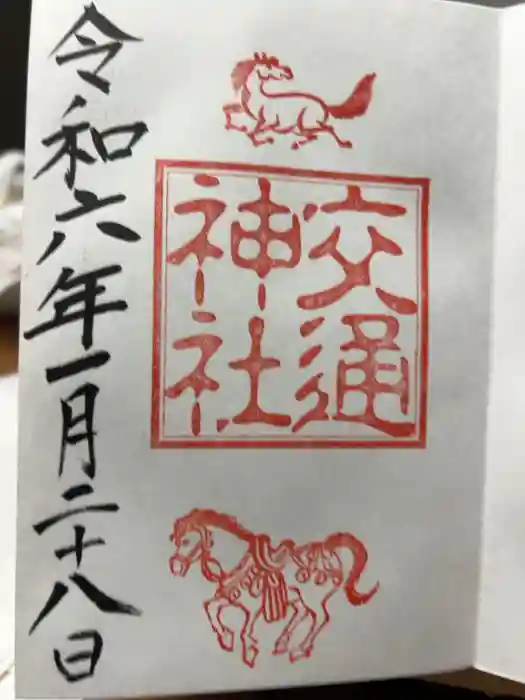 交通
神社
令和六年一月二十八日